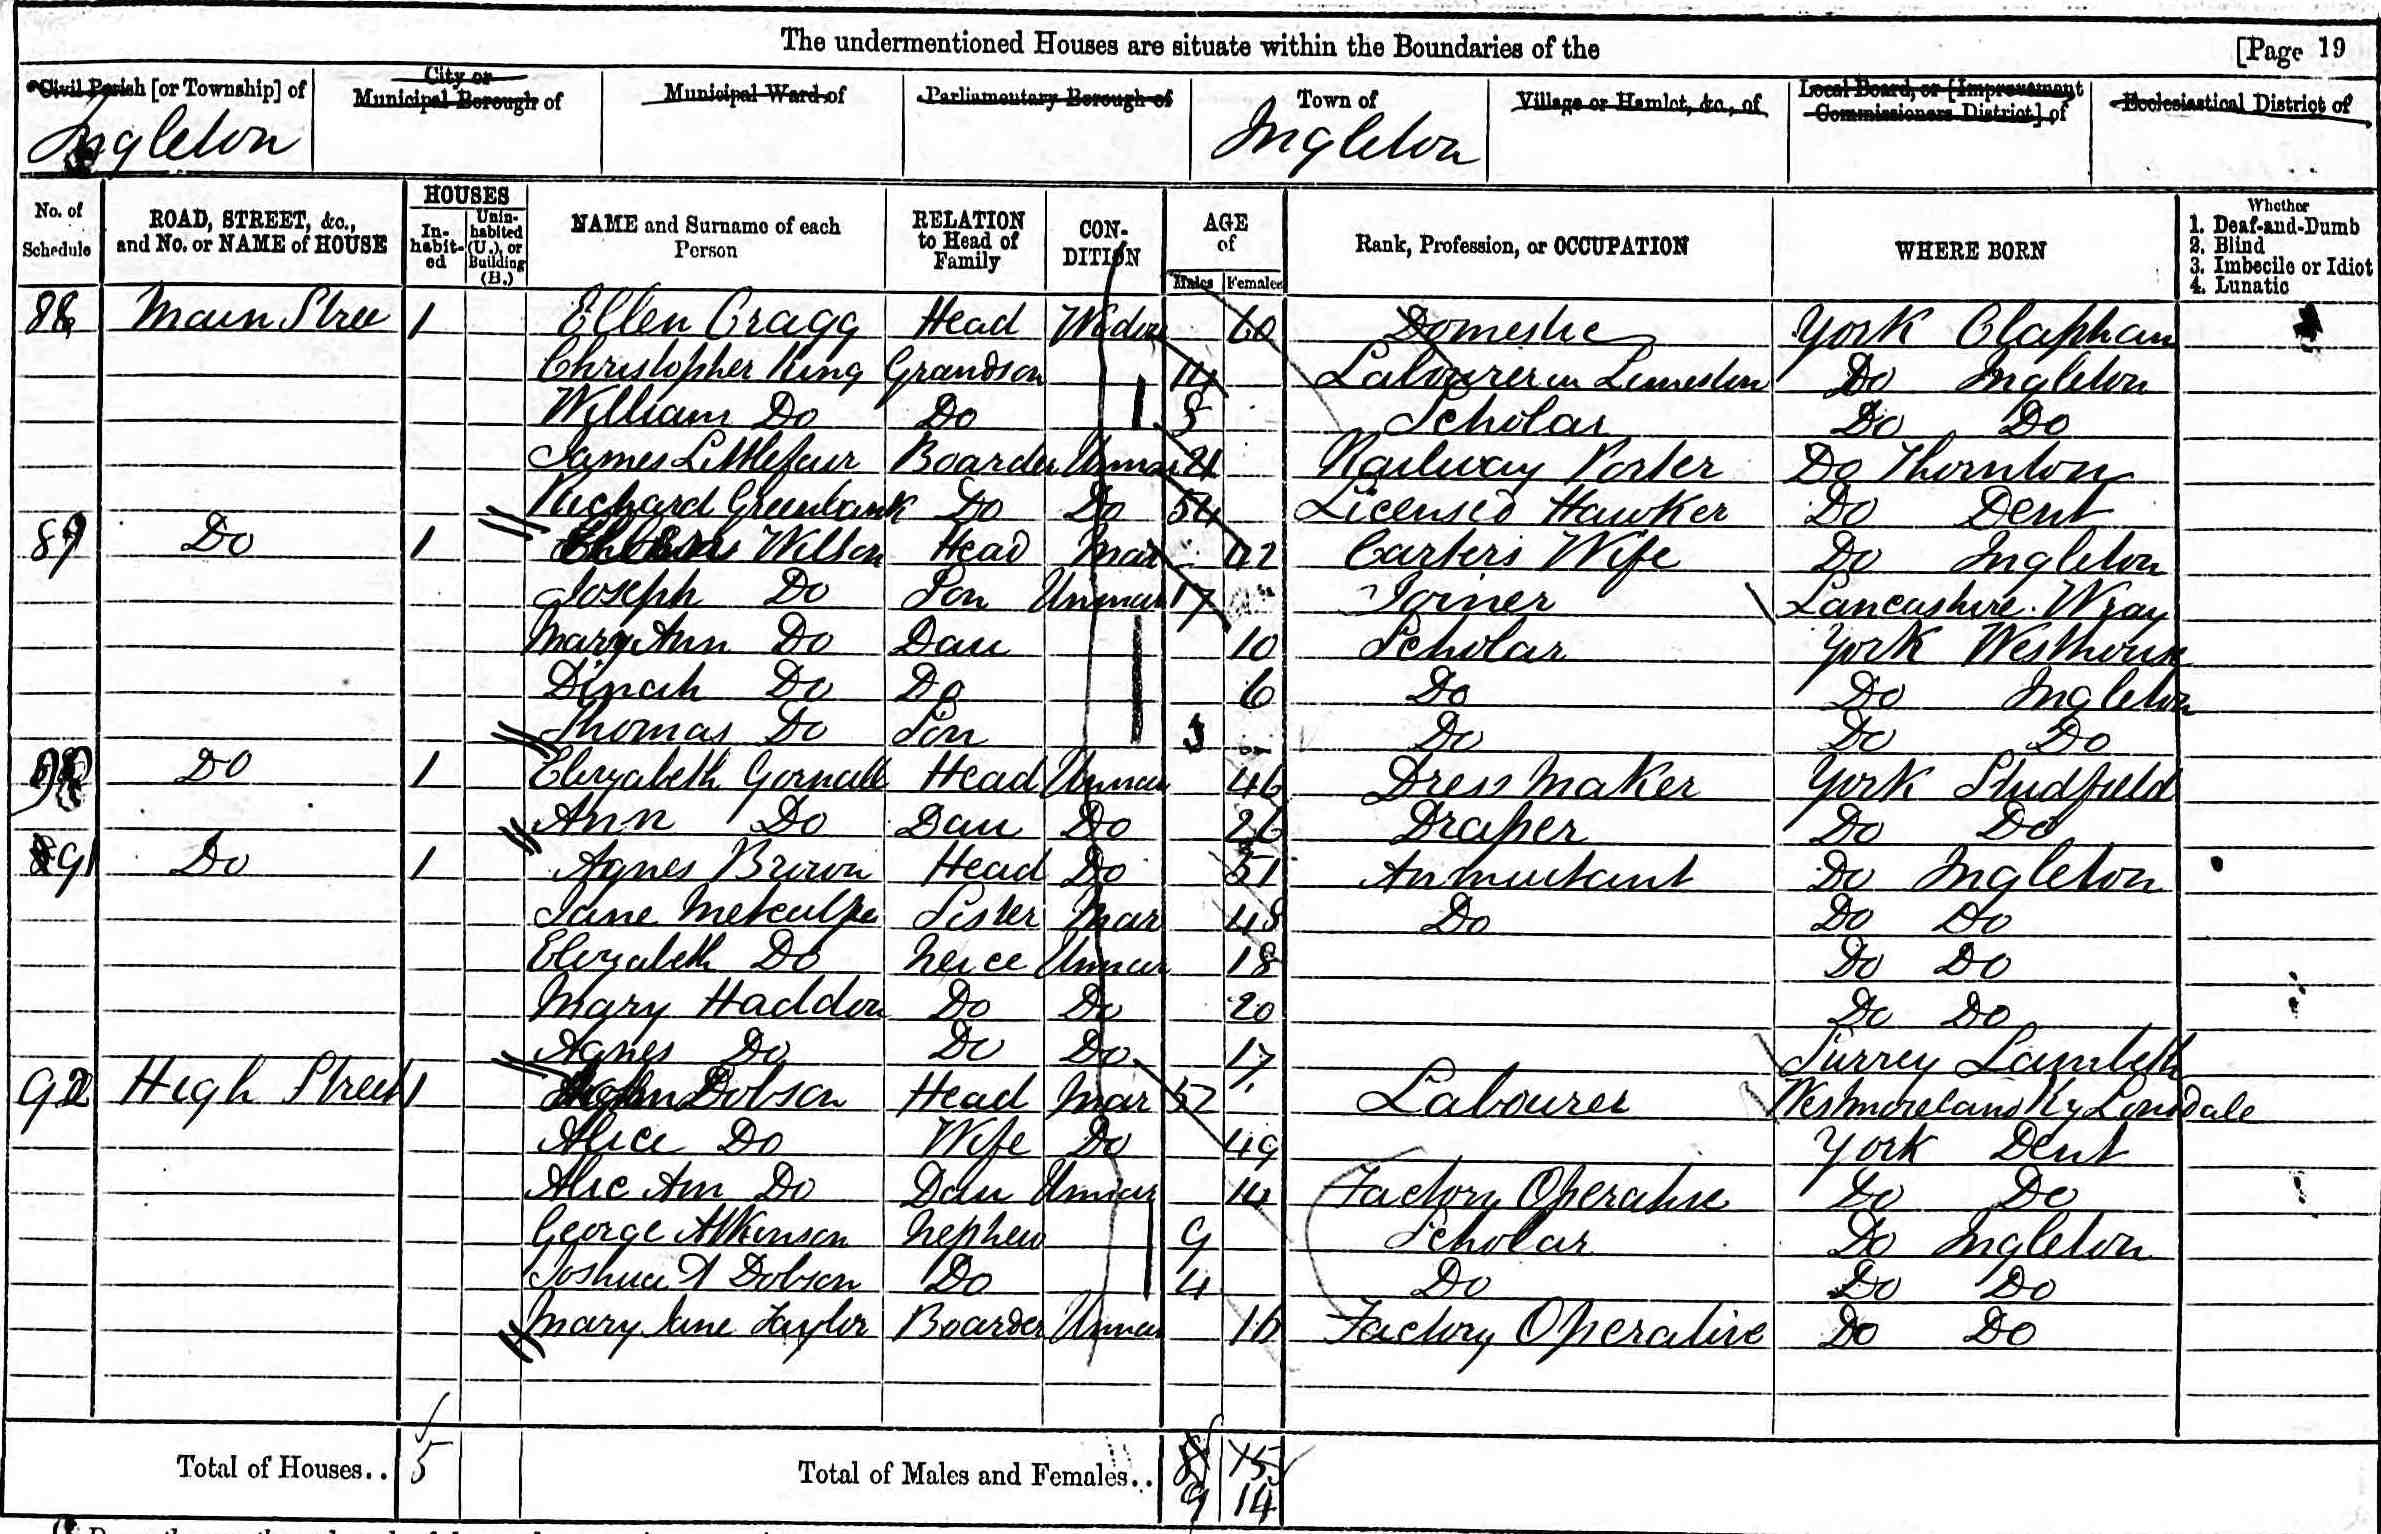 The undermentioned Houses are situate within the Boundaries of the [Page 19
Civil Parish [or Township] of City or Municipal Borough of Municipal Ward of Parliamentary Borough of Town of Village or Hamlet, &c., of Local Board, or [Improvement Commissioners District] of Ecclesiastical District of
Ingleton Ingleton
No. of Schedule ROAD, STREET, &c., and No. or NAME of HOUSE HOUSES Inhabited Uninhabited (U.), or Building (B.) NAME and Surname of each Person RELATION to Head of Family CONDITION AGE of Males Females Rank, Profession, or OCCUPATION WHERE BORN Whether 1. Deaf-and-Dumb 2. Blind 3. Imbecile or Idiot 4. Lunatic
88 Main Stree 1 Ellen Cragg Head Widow 60 Domestic York Clapham
Christopher King Grandson 14 Labourer in Limeston Do Ingleton
William Do Do Scholar Do Do
James Littlefair Boarder Unmar 21 Railway Porter Do Thornton
Richard Greenbank Do Do 54 Licensed Hawker Do Dent
89 Do 1 Wilson Head Mar 42 Carters Wife Do Ingleton
Joseph Do Son Unmar 17 Joiner Lancashire Wray
Mary Ann Do Dau 10 Scholar York Westhouse
Dinah Do Do 6 Do Do Ingleton
Thomas Do Son 3 Do Do Do
90 Do 1 Elizabeth Gornall Head Unmar 46 Dress Maker York Studfield
Ann Do Dau Do 26 Draper Do Do
91 Do 1 Agnes Brown Head Do 51 Annuitant Do Ingleton
Jane Metcalfe Sister Mar 48 Do Do Do
Elizabeth Do Neice Unmar 18 Do Do
Mary Haddon Do Do 20 Do Do
Agnes Do Do Do 17 Surrey Lambeth
92 High Street 1 John Dobson Head Mar 52 Labourer Westmoreland Ky Lonsdale
Alice Do Wife Do 49 York Dent
Alic Ann Do Dau Unmar 14 Factory Operative Do Do
George Atkinson Nephew 9 Scholar Do Ingleton
Joshua A Dobson Do 4 Do Do Do
Mary Jane Taylor Boarder Unmar 16 Factory Operative Do Do
Total of Houses.. 5 Total of Males and Females.. 8 15
9 14